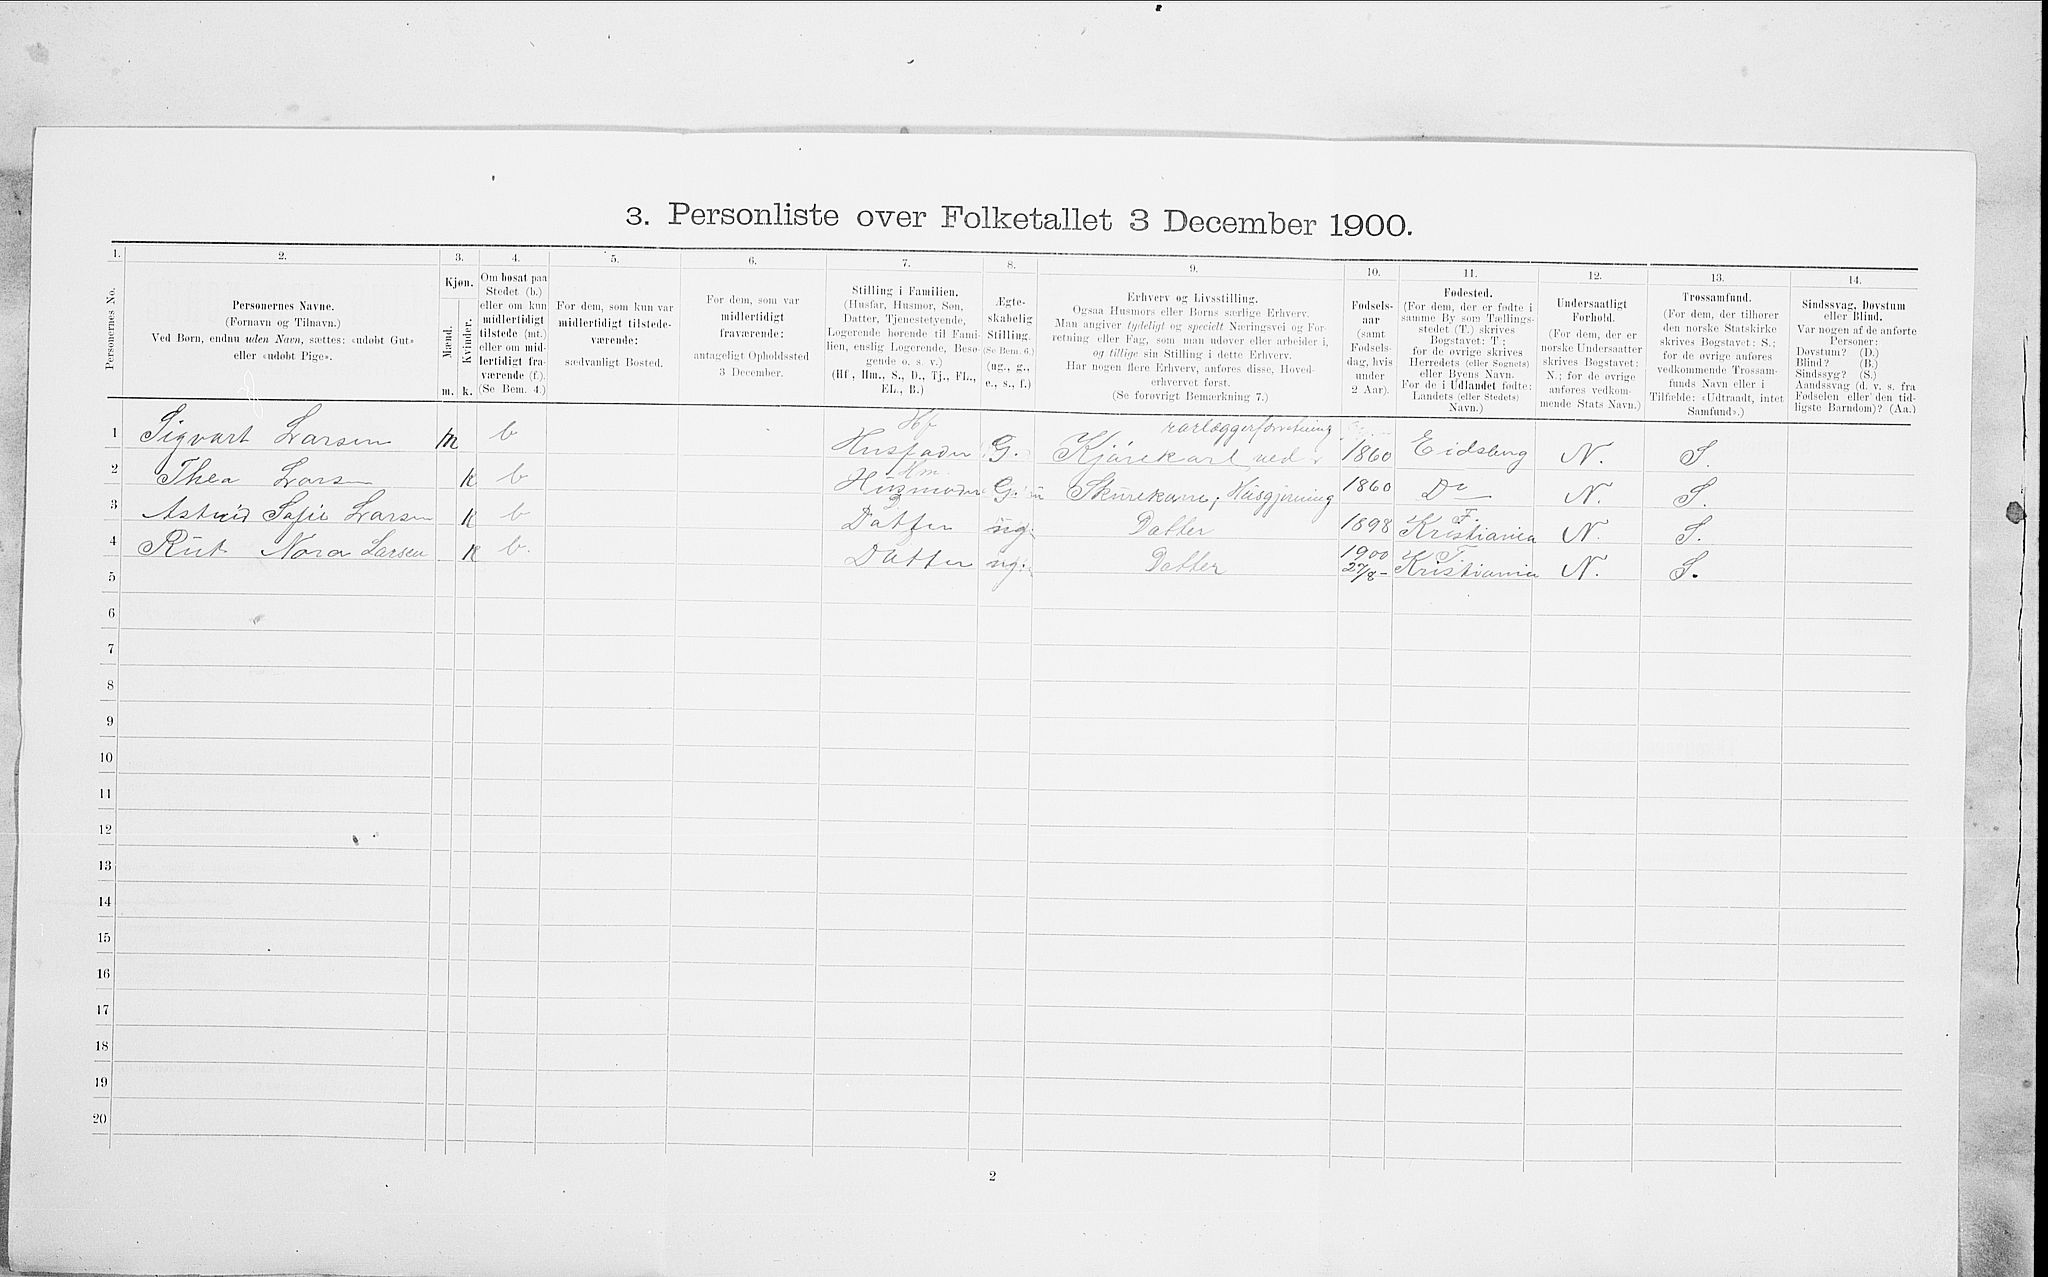 3. Personliste over Folketallet 3 December 1900.
1. 2. 3. 4. 5. 6. 7. 8. 9. 10. 11. 12. 13. 14.
Personernes No.
Personernes Navne.
(Fornavn og Tilnavn.)
Ved Børn, endnu uden Navn, sættes: «udøbt Gut»
eller «udøbt Pige».
Kjøn.
Mænd.
Kvinder.
m. k.
Om bosat paa
Stedet (b.)
eller om kun
midlertidigt
tilstede (mt.)
eller om mid-
lertidigt fra-
værende (f.).
(Se Bem. 4.)
For dem, som kun var
midlertidigt tilstede-
værende:
sædvanligt Bosted.
For dem, som var
midlertidigt
fraværende:
antageligt Opholdssted
3 December.
Stilling i Familien.
(Husfar, Husmor, Søn,
Datter, Tjenestetyende,
Logerende hørende til Fami-
lien, enslig Logerende, Besø-
gende o. s. v.)
(Hf., Hm., S., D., Tj., FL.,
EL., B.)
Ægte-
skabelig
Stilling.
(Se Bem. 6.)
(ug., g.,
e., s., f.)
Erhverv og Livsstilling.
Ogsaa Husmors eller Børns særlige Erhverv.
Man angiver tydeligt og specielt Næringsvei og For-
retning eller Fag, som man udøver eller arbeider i,
og tillige sin Stilling i dette Erhverv.
Har nogen flere Erhverv, anføres disse, Hoved-
erhvervet først.
(Se forøvrigt Bemærkning 7.)
Fødsels-
aar
(samt
Fødsels-
dag, hvis
under
2 Aar).
Fødested.
(For dem, der er fødte i
samme By som Tællings-
stedet (T.) skrives
Bogstavet: T;
for de øvrige skrives
Herredets (eller Sognets)
eller Byens Navn.
For de i Udlandet fødte:
Landets (eller Stedets)
Navn.)
Undersaatligt
Forhold.
(For dem, der er
norske Undersaatter
skrives Bogstavet:
N.; for de øvrige
anføres vedkom-
mende Stats Navn.)
Trossamfund.
(For dem, der tilhører
den norske Statskirke
skrives Bogstavet: S.;
for de øvrige anføres
vedkommende Trossam-
funds Navn eller i
Tilfælde: «Udtraadt, intet
Samfund».)
Sindssvag, Døvstum
eller Blind.
Var nogen af de anførte
Personer:
Døvstum? (D.)
Blind? (B.)
Sindssyg? (S.)
Aandssvag (d. v. s. fra
Fødselen eller den tid-
ligste Barndom)? (Aa.)
Hf rørlæggerforretning
1 Sigvart Larsen m b Husfader G. Kjørekarl ved 1860 Eidsberg N. S.
Hm.
2 Thea Larsen k b Husmoder G. Skurekone, Husgjerning 1860 Do N. S.
T.
3 Astrid Sofie Larsen k b Datter ug. Datter 1898 Kristiania N. S.
1900 T.
4 Rut Nora Larsen k b. Datter ug. Datter 27/8 - Kristiania N. S.
5
6
7
8
9
10
11
12
13
14
15
16
17
18
19
20
2